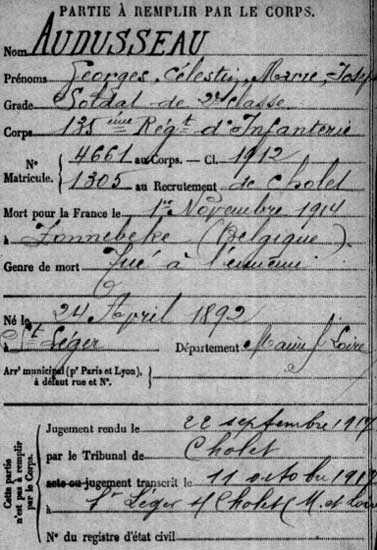 PARTIE À REMPLIR PAR LE CORPS.
Nom AUDUSSEAU
Prénoms Georges, Célestin, Marie, Josep
Grade Soldat de 2me classe
Corps 135ème Régt d'Infanterie
N° Matricule. { 4661 au Corps. — Cl. 1912
1305 au Recrutement de Cholet
Mort pour la France le 1er Novembre 1914
à Zonnebeke (Belgique)
Genre de mort Tué à l'ennemi
Né le 24 April 1892
à St Léger Département Maine & Loire
Arrt municipal (pr Paris et Lyon), à défaut rue et N°.
Cette partie n'est pas à remplir par le Corps.
Jugement rendu le 22 septembre 1917
par le Tribunal de Cholet
acte ou jugement transcrit le 11 octobre 1917
à St Léger s/ Cholet (M. et Loire
N° du registre d'état civil